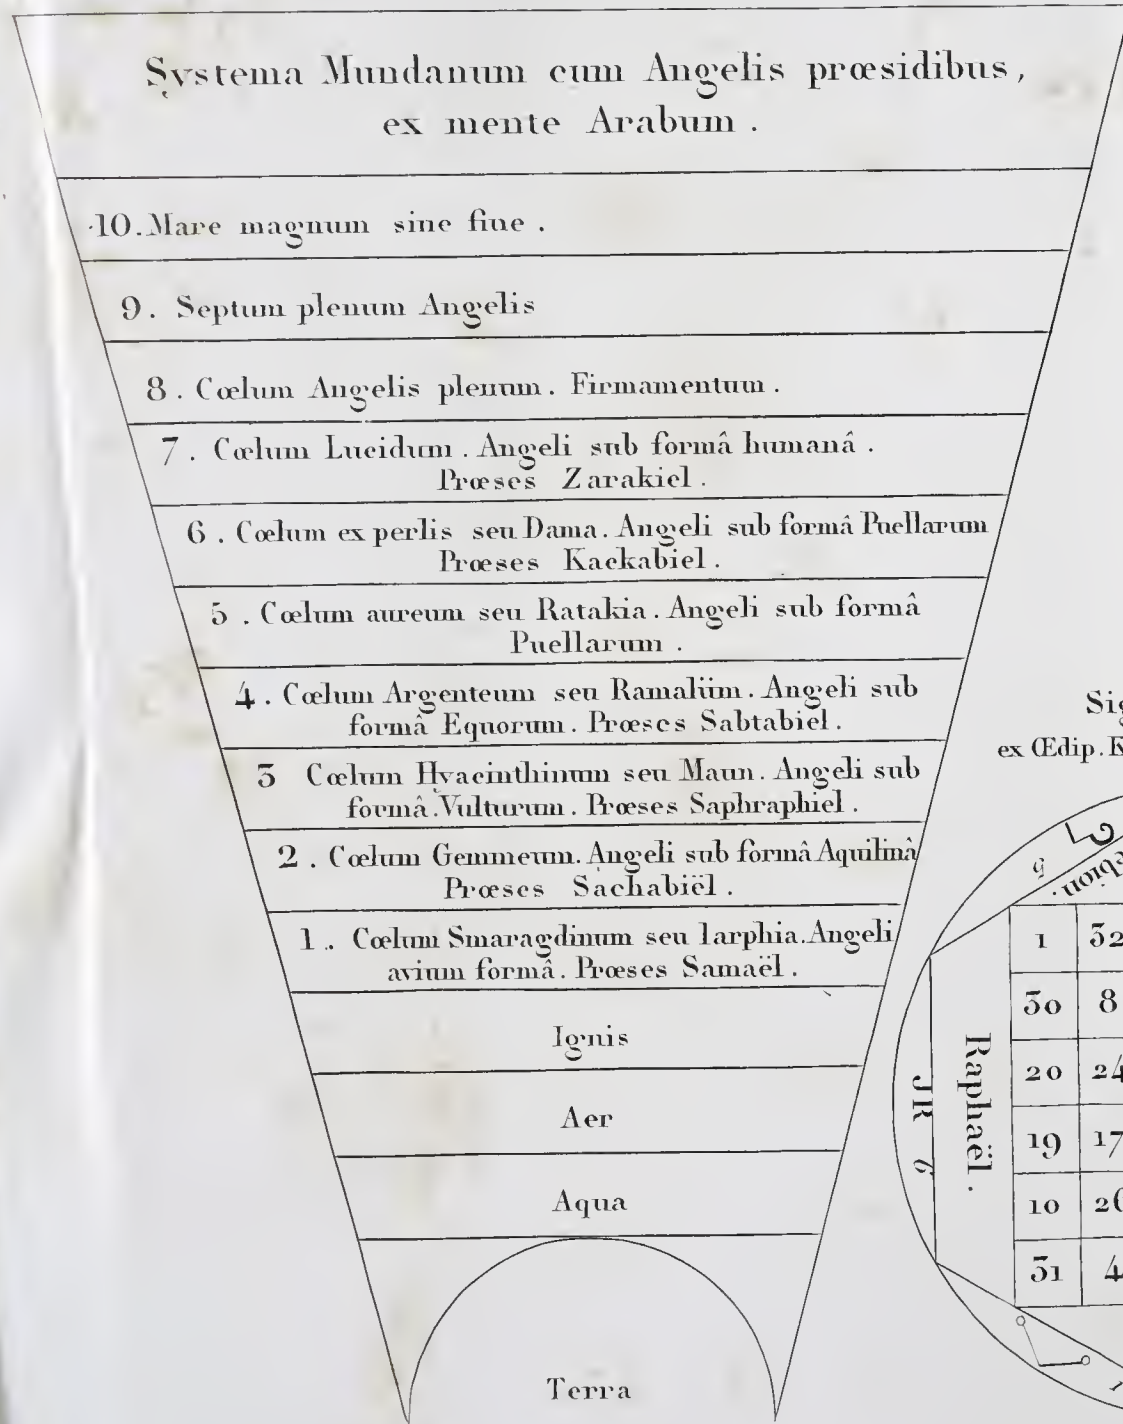 Systema Mundanum cum Angelis præsidibus,
ex mente Arabum.
10. Mare magnum sine fine.
9. Septum plenum Angelis
8. Cœlum Angelis plenum. Firmamentum.
7. Cœlum Lucidum. Angeli sub formâ humanâ.
Præses Zarakiel.
6. Cœlum ex perlis seu Dama. Angeli sub formâ Puellarum
Præses Kackabiel.
5. Cœlum aureum seu Ratakia. Angeli sub formâ
Puellarum.
4. Cœlum Argenteum seu Ramaliim. Angeli sub
formâ Equorum. Præses Sabtabiel.
3 Cœlum Hyacinthinum seu Maun. Angeli sub
formâ Vulturum. Præses Saphraphiel.
2. Cœlum Gemmeum. Angeli sub formâ Aquilinâ
Præses Sachabiël.
1. Cœlum Smaragdinum seu Iarphia. Angeli
avium formâ. Præses Samaël.
Ignis
Aer
Aqua
Terra
ex Œdip.
JR 6
Raphaël.
1 32
30 8
20 24
19 17
10 26
31 4